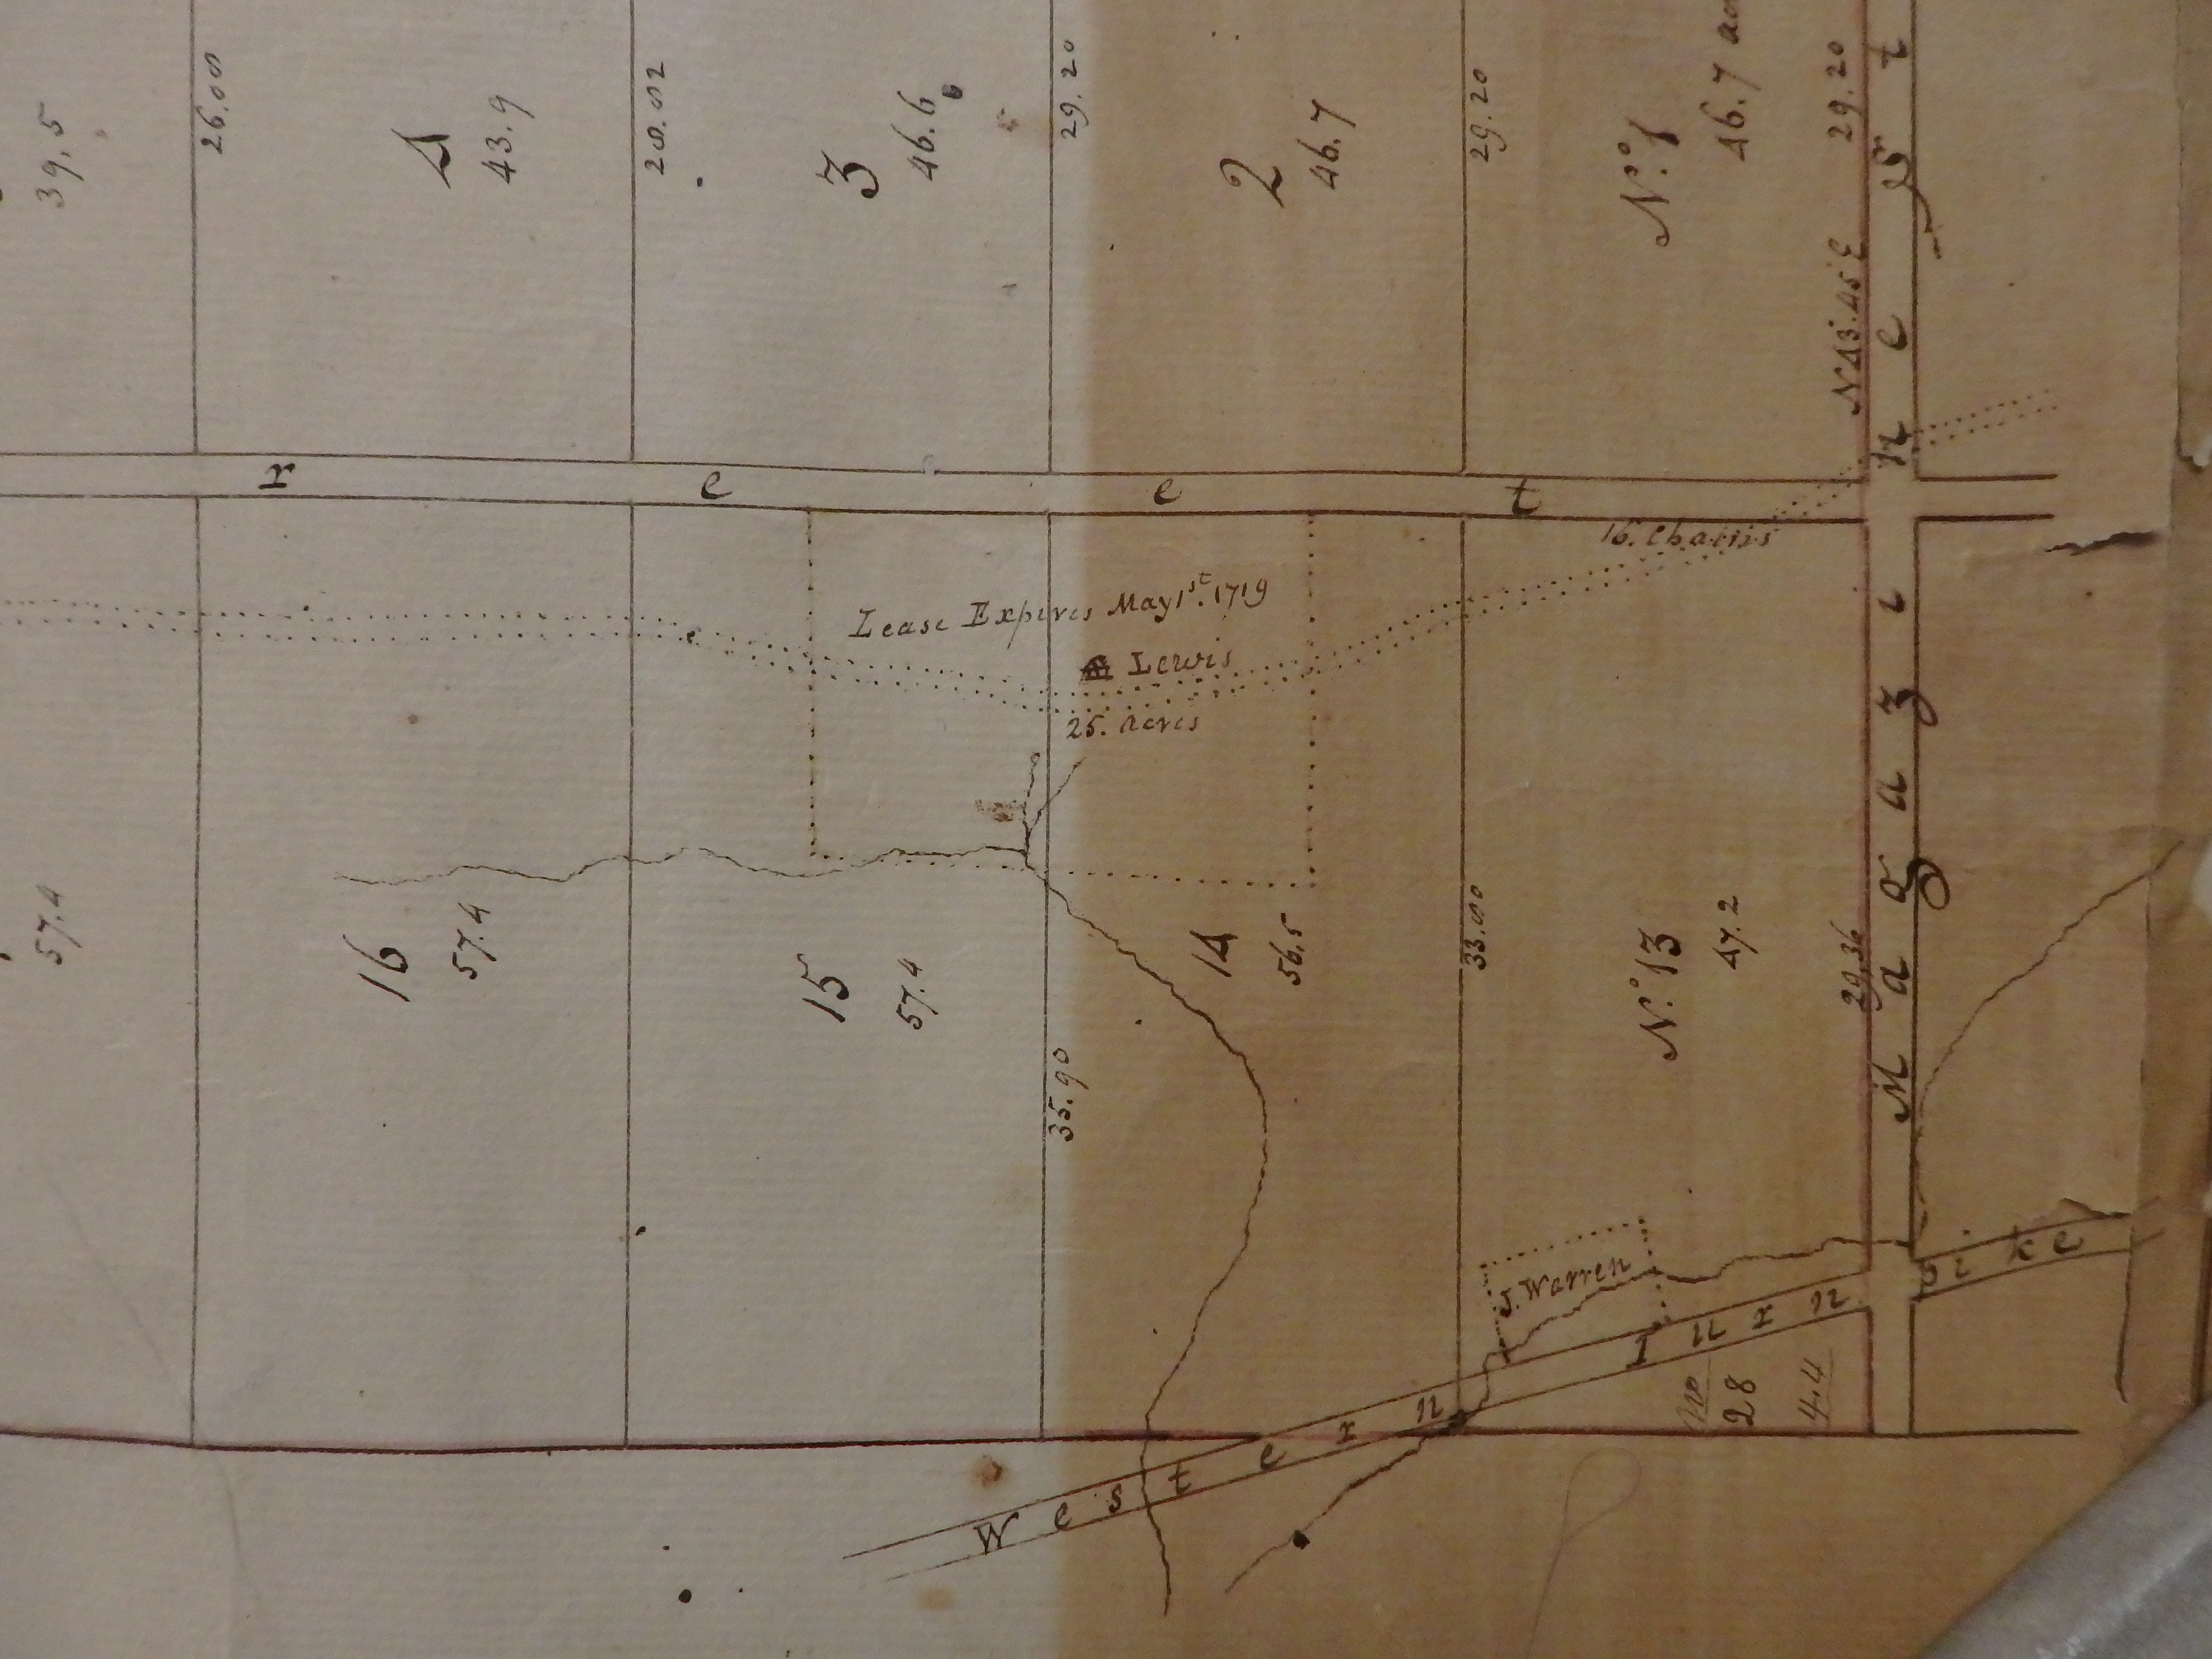 39,5
26.00
4
43.9
28.02
3
46.6
29.20
2
46.7
29.20
N.º 1
46.7
29.20
N 43.45 E
r e e t
Magazine St
16. Chains
Lease Expires May 1st. 1719
Lewis
25. acres
57.4
16
57.4
15
57.4
35.90
14
56,5
33.00
N.º 13
47.2
29,36
J. Warren
Western Turnpike
28
4.4